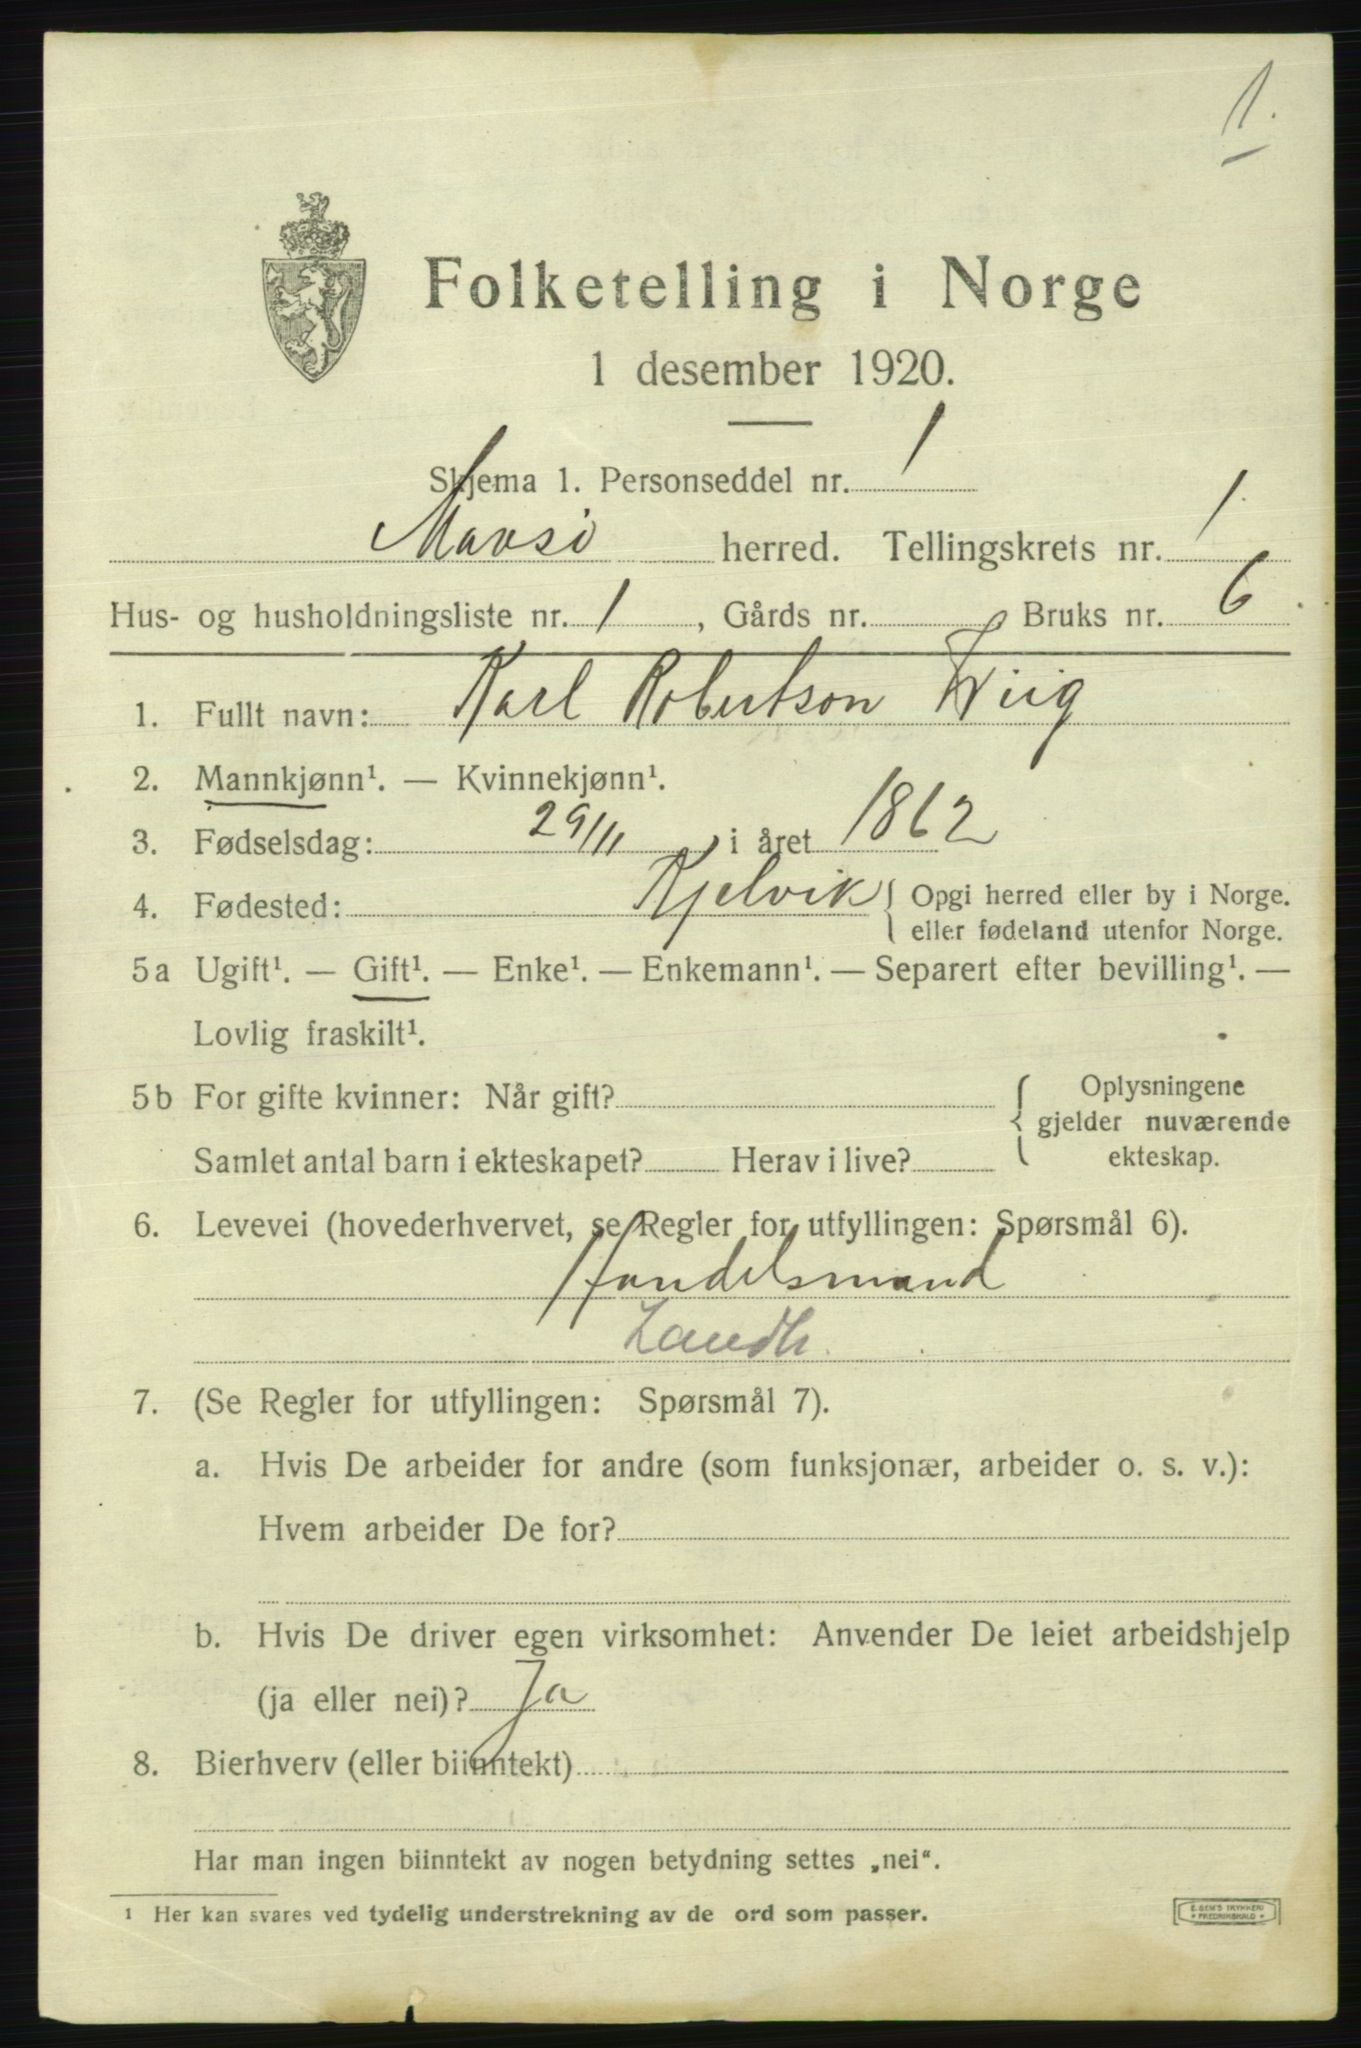 1.
Folketelling i Norge
1 desember 1920.
Skjema 1. Personseddel nr. 1
Maasø herred. Tellingskrets nr. 1
Hus- og husholdningsliste nr. 1, Gårds nr. Bruks nr. 6
1. Fullt navn: Karl Robertson Wiig
2. Mannkjønn¹. — Kvinnekjønn¹.
3. Fødselsdag: 29/11 i året 1862
4. Fødested: Kjelvik { Opgi herred eller by i Norge.
eller fødeland utenfor Norge.
5a Ugift¹. — Gift¹. — Enke¹. — Enkemann¹. — Separert efter bevilling¹. —
Lovlig fraskilt¹.
5b For gifte kvinner: Når gift? { Oplysningene
gjelder nuværende
Samlet antal barn i ekteskapet? Herav i live? ekteskap.
6. Levevei (hovederhvervet, se Regler for utfyllingen: Spørsmål 6).
Handelsmand
Landh.
7. (Se Regler for utfyllingen: Spørsmål 7).
a. Hvis De arbeider for andre (som funksjonær, arbeider o. s. v.):
Hvem arbeider De for?
b. Hvis De driver egen virksomhet: Anvender De leiet arbeidshjelp
(ja eller nei)? Ja
8. Bierhverv (eller biinntekt)
Har man ingen biinntekt av nogen betydning settes „nei".
¹ Her kan svares ved tydelig understrekning av de ord som passer.
E. SEM'S TRYKKERI
• FREDRIKSHALD •